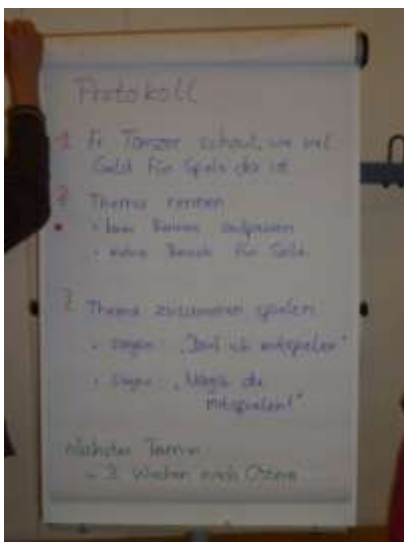 Protokoll
1 Fr Tanzer schaut, wie viel
Geld für Spiele da ist
2 Thema rennen
• beim Rennen aufpassen
• extra Bereich für
3 Thema zusammen spielen
- sagen: „Darf ich mitspielen"
• sagen: „Magst du
mitspielen?"
nächster Termin
- 3 Wochen nach Ostern